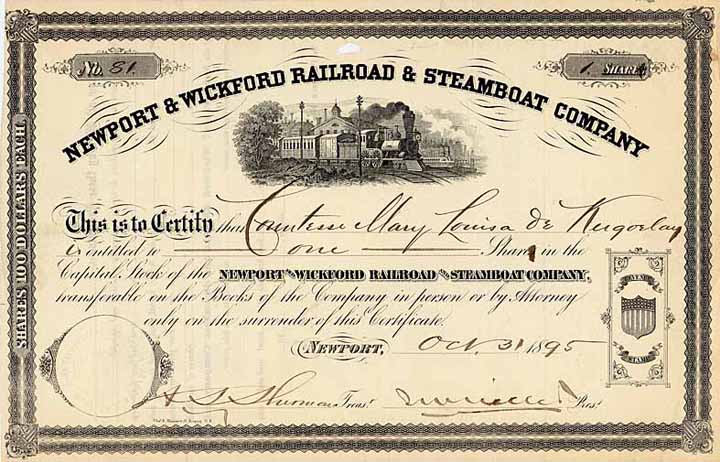 No. 81.
1. SHARE
NEWPORT & WICKFORD RAILROAD & STEAMBOAT COMPANY
SHARES 100 DOLLARS EACH.
This is to Certify that Countesse Mary Louisa de Kergorlay
is entitled to one Share in the
Capital Stock of the NEWPORT AND WICKFORD RAILROAD AND STEAMBOAT COMPANY,
transferable on the Books of the Company in person or by Attorney
only on the surrender of this Certificate.
NEWPORT, Oct. 31 1895
REVENUE
STAMP
A S Sherman Treasr.
Prest.